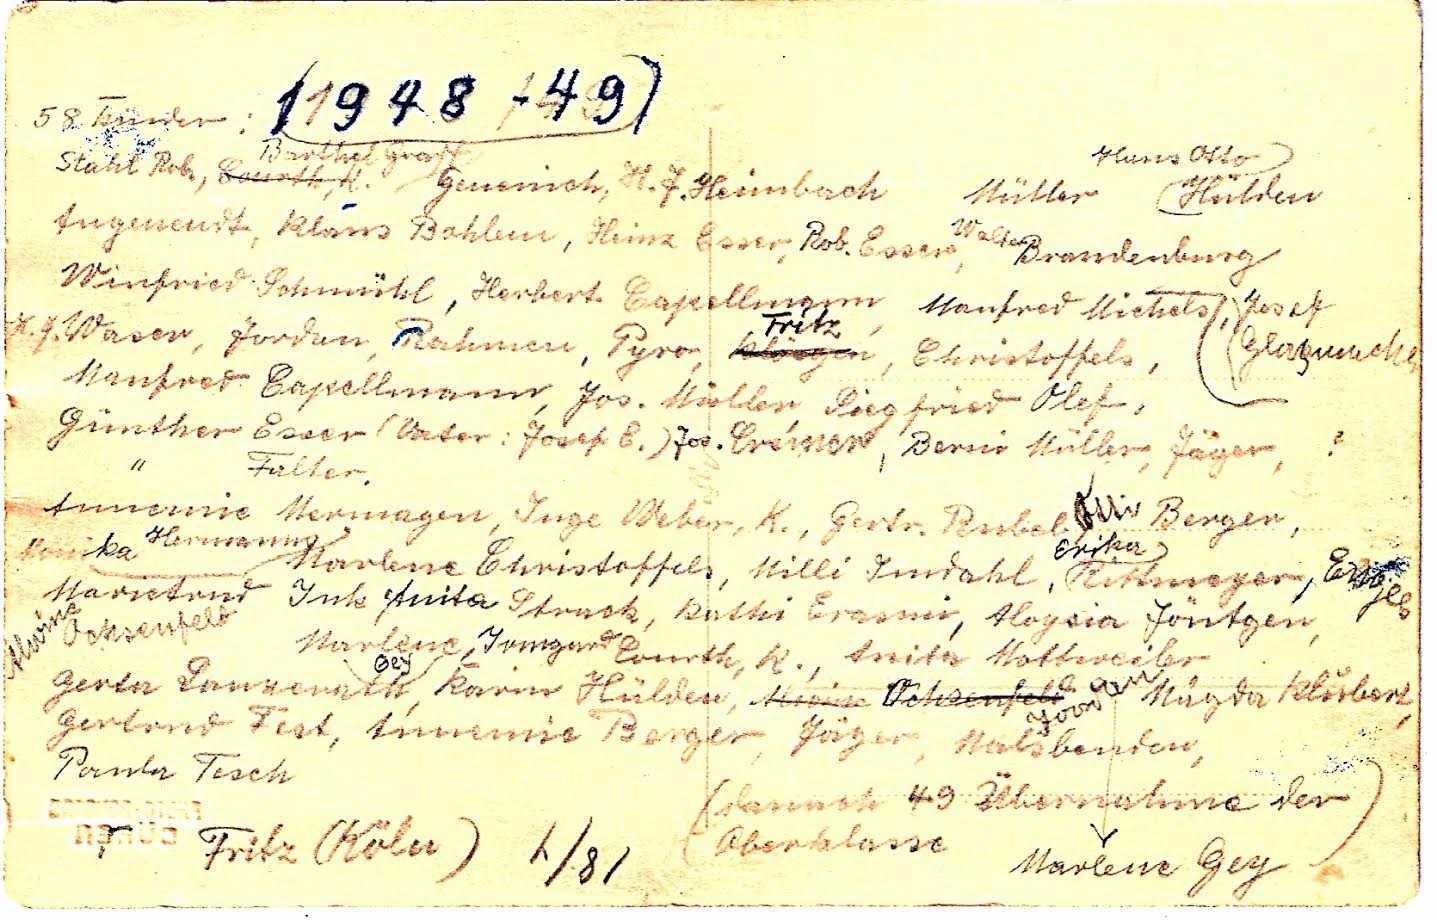 58 Kinder : (1948-49)
Barthel Graff Hans Otto
Stahl Rob., Courth, K. Genenich, H. J. Heimbach Müller Hülden
Angenendt, Klaus Bohlem, Heinz Esser, Rob. Esser, Walter Brandenburg
Winfried Schmühl, Herbert Capellmann, Manfred Michels, Josef
K. J. Waser, Jordan, Rahmen, Pyro, Fritz, Christoffels,
Manfred Capellmann, Jos. Müller Siegfried Olef,
Günther Esser (Vater: Josef E.) Jos. Cremer, Bernd Müller, Jäger, ?
" Falter.
Annemie Mermagen, Inge Weber, K., Gertr. Rubel, Berger,
Monika Hermanns Marlene Christoffels, Milli Imdahl, Erika
Marietrud Ink Anita Struck, Käthi Erasmi, Aloysia Jöntgen,
Alwine Ochsenfeld
Marlene Gey, Irmgard Courth, K., Anita Mottweiler
Gerta Lanzerath, Karin Hülden, Ochsenfeld Magda
Gertrud Fest, Annemie Berger, Jäger, Malsbenden,
Paula Tesch
(danach 49 Übernahme der
Oberklasse
DÜREN
Fritz (Köln) Marlene Gey